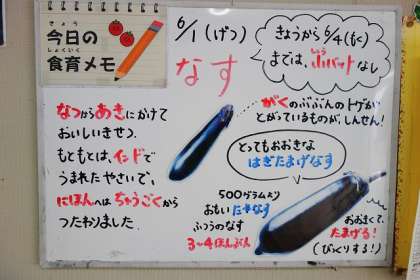 きょう
今日の
しょくいく
食育メモ
6/1(げつ)
なす
きょうから6/4(もく)
までは、小バットなし
しょう
なつからあきにかけて
おいしいきせつ。
もともとは、インドで
うまれたやさいで、
にほんへはちゅうごくから
つたわりました。
がくのぶぶんのトゲが
とがっているものが、しんせん!
とってもおおきな
はぎたまげなす
500グラムより
おもい
ふつうのなす
3〜4ほんぶん
おおきくて、
たまげる!
(びっくりする!)